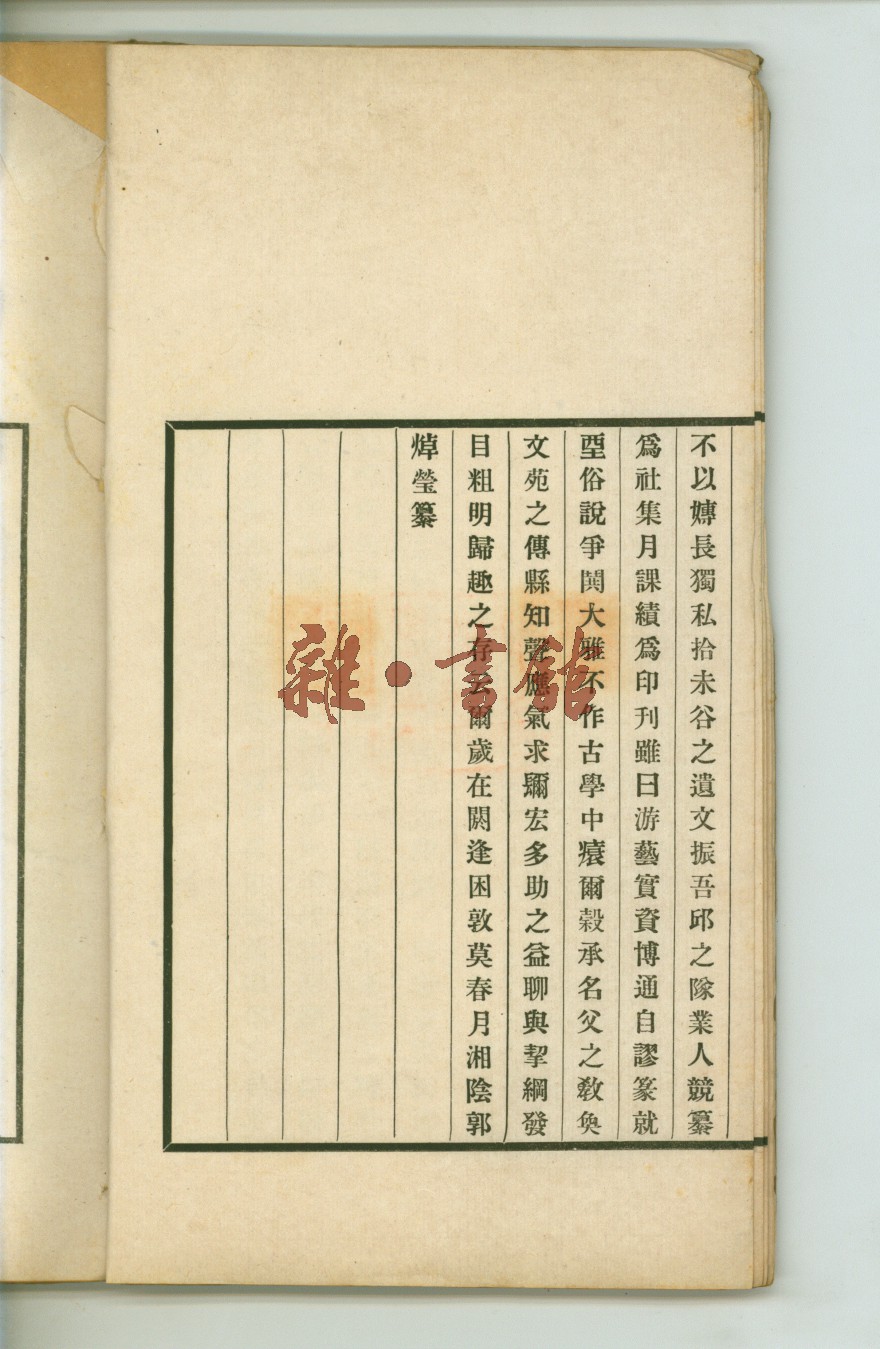 不以嫥長獨私拾未谷之遺文振吾邱之隊業人競纂
爲社集月課績爲印刊雖曰游藝實資博通自謬篆就
堊俗說爭鬨大雅不作古學中㿂爾榖承名父之敎奐
文苑之傳縣知聲應氣求彌宏多助之益聊與挈綱發
目粗明歸趣之存云爾歲在閼逢困敦莫春月湘陰郭
焯瑩纂
雜·書館